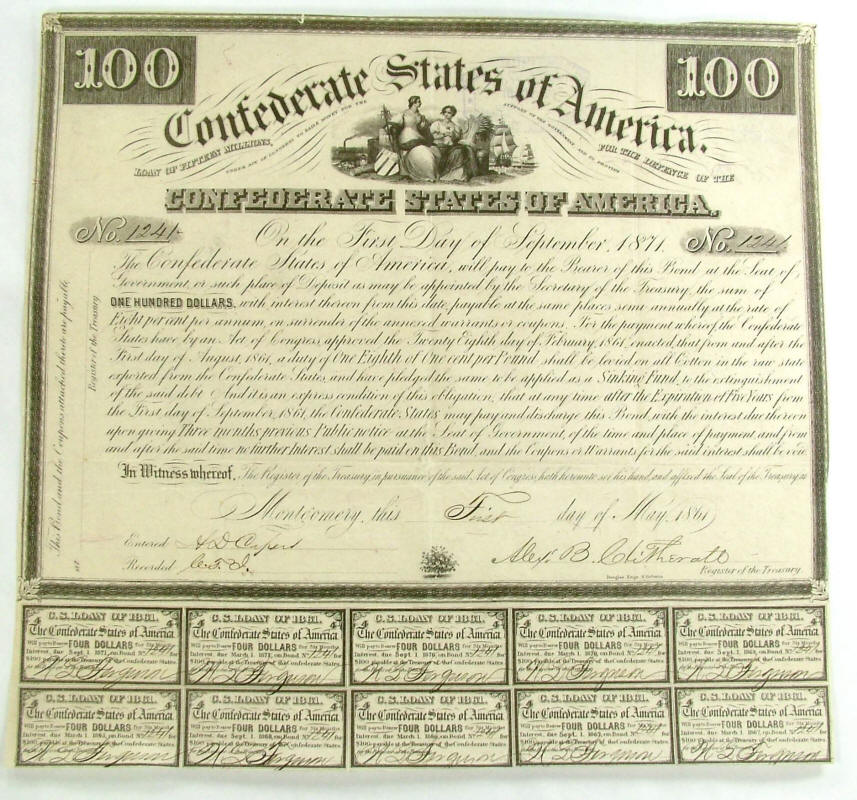 100
100
Confederate States of America.
LOAN OF FIFTEEN MILLIONS,
UNDER ACT OF CONGRESS TO RAISE MONEY FOR THE
SUPPORT OF THE GOVERNMENT AND TO PROVIDE
FOR THE DEFENCE OF THE
CONFEDERATE STATES OF AMERICA.
No. 1241
No. 1241
On the First Day of September, 1871.
The Confederate States of America, will pay to the Bearer of this Bond at the Seat of
Government, or such place of Deposit as may be appointed by the Secretary of the Treasury, the sum of
ONE HUNDRED DOLLARS, with interest thereon from this date, payable at the same places, semi-annually at the rate of
Eight per cent per annum, on surrender of the annexed warrants or coupons. For the payment whereof, the Confederate
States have by an Act of Congress, approved the Twenty Eighth day of February, 1861, enacted, that from and after the
First day of August, 1861, a duty of One Eighth of One cent per Pound shall be levied on all Cotton in the raw state
exported from the Confederate States, and have pledged the same to be applied as a Sinking Fund, to the extinguishment
of the said debt. And it is an express condition of this obligation, that at any time after the Expiration of Five Years from
the First day of September, 1861, the Confederate States may pay and discharge this Bond, with the interest due thereon
upon giving Three months previous Public notice at the Seat of Government, of the time and place of payment, and from
and after the said time no further Interest shall be paid on this Bond, and the Coupons or Warrants for the said interest shall be void
In Witness whereof, The Register of the Treasury in pursuance of the said Act of Congress, hath hereunto set his hand, and affixed the Seal of the Treasury, at
Montgomery, this First day of May, 1861
Entered
Recorded
Alex. B. Clitherall
Register of the Treasury.
Douglas Engr. N. Orleans
This Bond and the Coupons attached thereto are payable
at
Register of the Treasury
C.S. LOAN OF 1861.
The Confederate States of America
Will pay to Bearer FOUR DOLLARS for Six Months
Interest, due Sept. 1, 1871, on Bond No. 1241 for
$100 payable at the Treasury of the Confederate States.
Ferguson
C.S. LOAN OF 1861.
The Confederate States of America
Will pay to Bearer FOUR DOLLARS for Six Months
Interest, due March 1, 1871, on Bond No. 1241 for
$100 payable at the Treasury of the Confederate States.
Ferguson
C.S. LOAN OF 1861.
The Confederate States of America
Will pay to Bearer FOUR DOLLARS for Six Months
Interest, due Sept. 1, 1870, on Bond No. 1241 for
$100 payable at the Treasury of the Confederate States.
Ferguson
C.S. LOAN OF 1861.
The Confederate States of America
Will pay to Bearer FOUR DOLLARS for Six Months
Interest, due March 1, 1870, on Bond No. 1241 for
$100 payable at the Treasury of the Confederate States.
Ferguson
C.S. LOAN OF 1861.
The Confederate States of America
Will pay to Bearer FOUR DOLLARS for Six Months
Interest, due Sept. 1, 1869, on Bond No. 1241 for
$100 payable at the Treasury of the Confederate States.
Ferguson
C.S. LOAN OF 1861.
The Confederate States of America
Will pay to Bearer FOUR DOLLARS for Six Months
Interest, due March 1, 1869, on Bond No. 1241 for
$100 payable at the Treasury of the Confederate States.
Ferguson
C.S. LOAN OF 1861.
The Confederate States of America
Will pay to Bearer FOUR DOLLARS for Six Months
Interest, due Sept. 1, 1868, on Bond No. 1241 for
$100 payable at the Treasury of the Confederate States.
Ferguson
C.S. LOAN OF 1861.
The Confederate States of America
Will pay to Bearer FOUR DOLLARS for Six Months
Interest, due March 1, 1868, on Bond No. for
$100 payable at the Treasury of the Confederate States.
Ferguson
C.S. LOAN OF 1861.
The Confederate States of America
Will pay to Bearer FOUR DOLLARS for Six Months
Interest, due Sept. 1, 1867, on Bond No. 1241 for
$100 payable at the Treasury of the Confederate States.
Ferguson
C.S. LOAN OF 1861.
The Confederate States of America
Will pay to Bearer FOUR DOLLARS for Six Months
Interest, due March 1, 1867, on Bond No. 1241 for
$100 payable at the Treasury of the Confederate States.
Ferguson